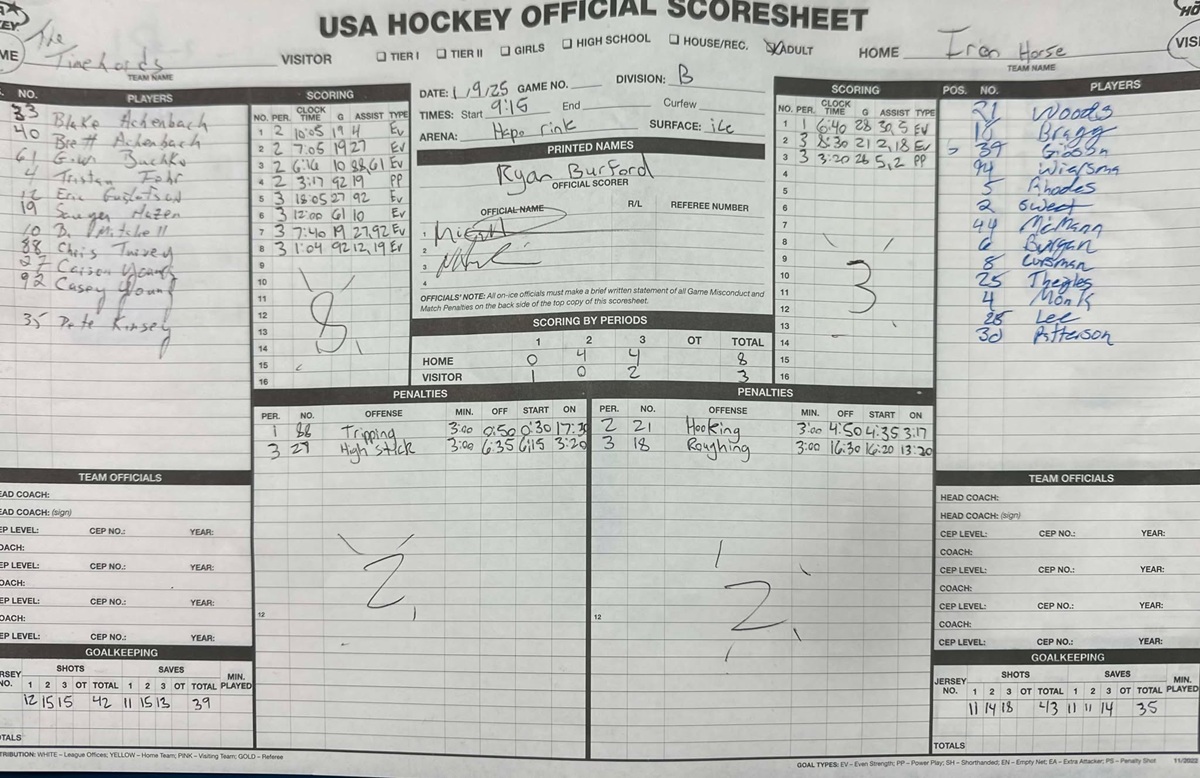 USA HOCKEY OFFICIAL SCORESHEET
The
Timehards
VISITOR ☐ TIER I ☐ TIER II ☐ GIRLS ☐ HIGH SCHOOL ☐ HOUSE/REC. ☒ ADULT HOME Iron Horse
TEAM NAME
TEAM NAME
NO. PLAYERS
33 Blake Achenbach
40 Brett Achenbach
61
4 Tristan Fehr
12 Eric Gustafson
19 Sawyer Hazen
10 B. Mitchell
88 Chris Turvey
27 Carson Young
92 Casey Young
35 Pete Kinsey
SCORING
NO. PER. CLOCK TIME G ASSIST TYPE
1 2 10:05 19 4 Ev
2 2 7:05 19 27 Ev
3 2 6:16 10 88,61 Ev
4 2 3:17 92 19 PP
5 3 18:05 27 92 Ev
6 3 12:00 61 10 Ev
7 3 7:40 19 27,92 Ev
8 3 1:04 92 12,19 Ev
9
10
11
12
13
14
15
16
8
DATE: 1/9/25 GAME NO. DIVISION: B
TIMES: Start 9:15 End Curfew
ARENA: Hepo rink SURFACE: ice
PRINTED NAMES
Ryan Burford
OFFICIAL SCORER
OFFICIAL NAME R/L REFEREE NUMBER
1
2
3
4
OFFICIALS' NOTE: All on-ice officials must make a brief written statement of all Game Misconduct and
Match Penalties on the back side of the top copy of this scoresheet.
SCORING BY PERIODS
1 2 3 OT TOTAL
HOME 0 4 4 8
VISITOR 1 0 2 3
SCORING
NO. PER. CLOCK TIME G ASSIST TYPE
1 1 6:40 28 30,5 EV
2 3 8:30 21 2,18 Ev
3 3 3:20 26 5,2 PP
4
5
6
7
8
9
10
11
12
13
14
15
16
3
POS. NO. PLAYERS
21 Woods
18 Bragg
39 Gibson
94 Wiersma
5 Rhodes
2 Sweet
44 McMann
6
8
25
4 Monk
28 Lee
30 Patterson
PENALTIES
PER. NO. OFFENSE MIN. OFF START ON
1 88 Tripping 3:00 0:50 0:30 17:30
3 27 High Stick 3:00 6:35 6:15 3:20
12
2
PENALTIES
PER. NO. OFFENSE MIN. OFF START ON
2 21 Hooking 3:00 4:50 4:35 3:17
3 18 Roughing 3:00 16:30 16:20 13:20
12
2
TEAM OFFICIALS
HEAD COACH:
HEAD COACH: (sign)
CEP LEVEL: CEP NO.: YEAR:
COACH:
CEP LEVEL: CEP NO.: YEAR:
COACH:
CEP LEVEL: CEP NO.: YEAR:
COACH:
CEP LEVEL: CEP NO.: YEAR:
GOALKEEPING
JERSEY NO. SHOTS SAVES MIN. PLAYED
1 2 3 OT TOTAL 1 2 3 OT TOTAL
12 15 15 42 11 15 13 39
TOTALS
TEAM OFFICIALS
HEAD COACH:
HEAD COACH: (sign)
CEP LEVEL: CEP NO.: YEAR:
COACH:
CEP LEVEL: CEP NO.: YEAR:
COACH:
CEP LEVEL: CEP NO.: YEAR:
COACH:
CEP LEVEL: CEP NO.: YEAR:
GOALKEEPING
JERSEY NO. SHOTS SAVES MIN. PLAYED
1 2 3 OT TOTAL 1 2 3 OT TOTAL
11 14 18 43 11 11 14 35
TOTALS
DISTRIBUTION: WHITE – League Offices; YELLOW – Home Team; PINK – Visiting Team; GOLD – Referee
GOAL TYPES: EV – Even Strength; PP – Power Play; SH – Shorthanded; EN – Empty Net; EA – Extra Attacker; PS – Penalty Shot 11/2022